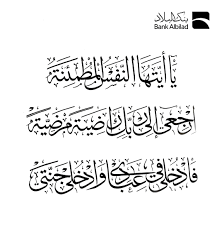 بنك البلاد
Bank Albilad
يا أيتها النفس المطمئنة
ارجعي إلى ربك راضية مرضية
فادخلي في عبادي وادخلي جنتي